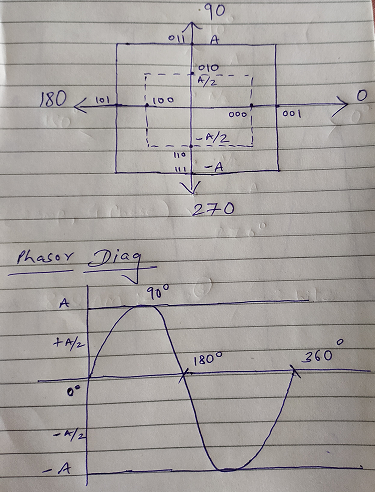 90
011 A
010
A/2
180 101 100 000 001 0
-A/2
110
111 -A
270
Phasor Diag
A 90°
+A/2
180° 360°
0°
-A/2
-A